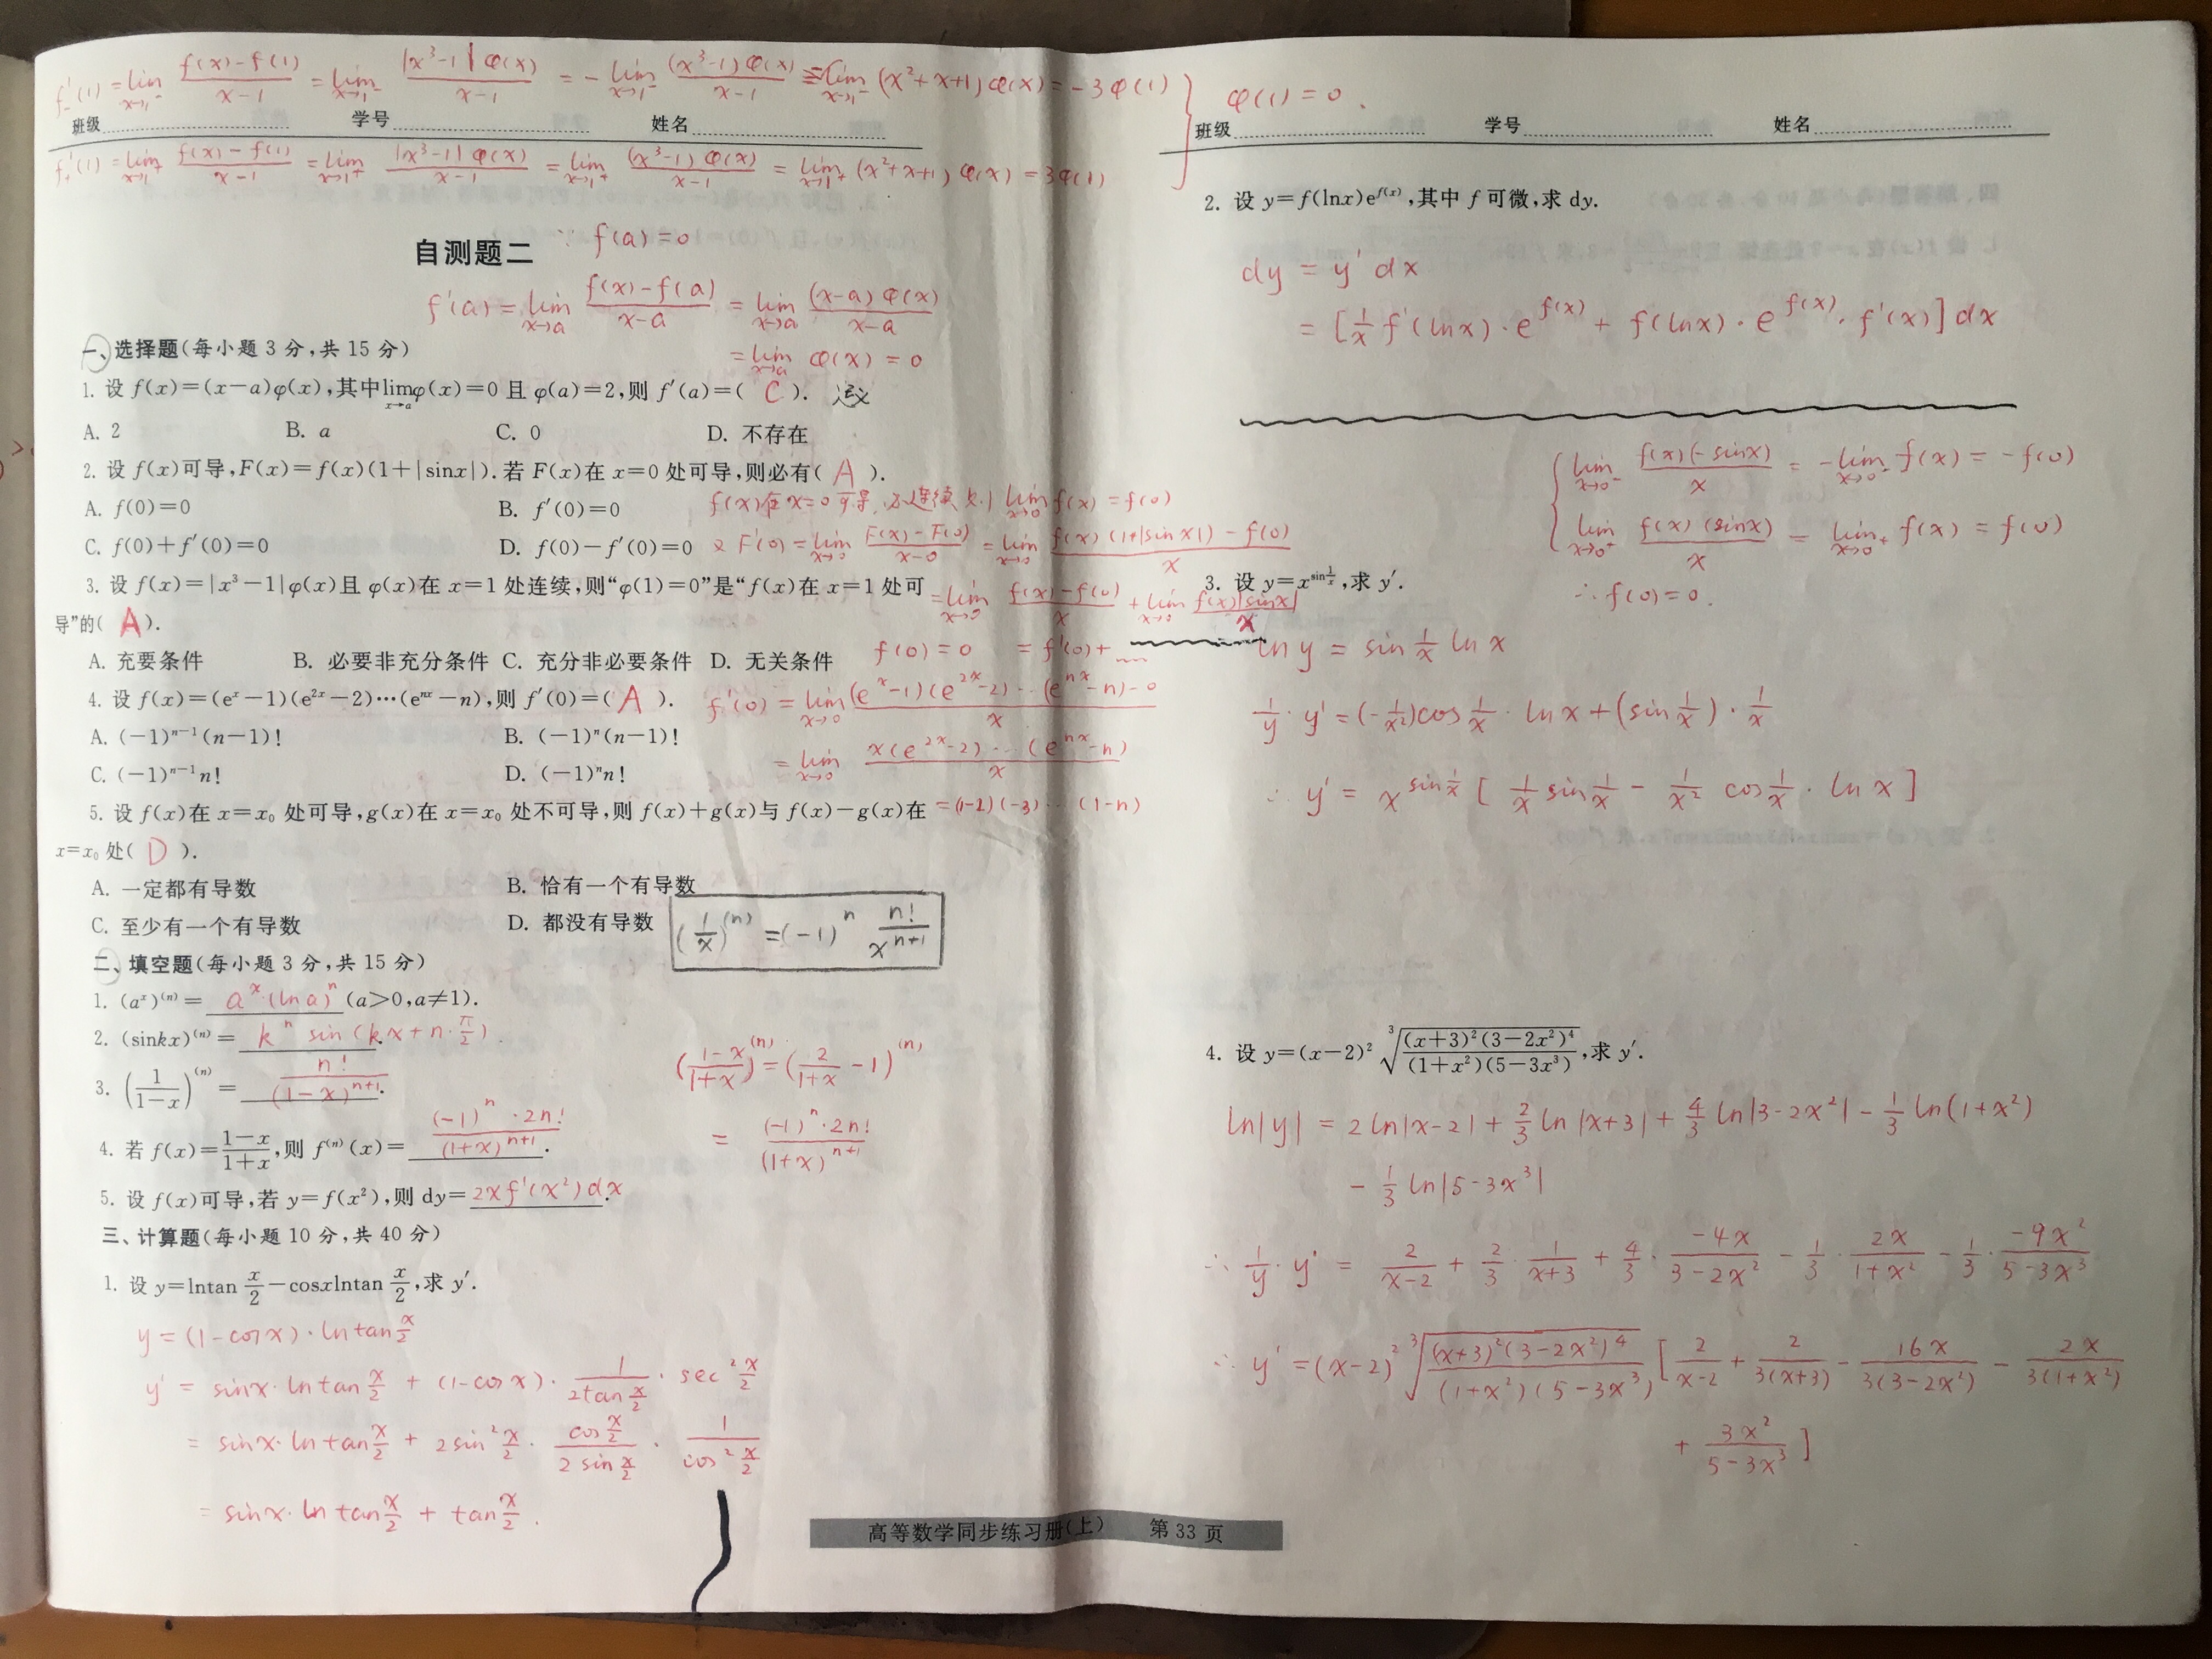 f₋'(1)=lim_{x→1⁻} (f(x)-f(1))/(x-1) = lim_{x→1⁻} |x³-1|φ(x)/(x-1) = -lim_{x→1⁻} (x³-1)φ(x)/(x-1) = -lim_{x→1⁻} (x²+x+1)φ(x) = -3φ(1)
班级 学号 姓名
f₊'(1)=lim_{x→1⁺} (f(x)-f(1))/(x-1) = lim_{x→1⁺} |x³-1|φ(x)/(x-1) = lim_{x→1⁺} (x³-1)φ(x)/(x-1) = lim_{x→1⁺} (x²+x+1)φ(x) = 3φ(1)
} φ(1)=0.
自测题二
∵ f(a)=0
f'(a)=lim_{x→a} (f(x)-f(a))/(x-a) = lim_{x→a} (x-a)φ(x)/(x-a)
=lim_{x→a} φ(x)=0
一、选择题(每小题 3 分,共 15 分)
1. 设 f(x)=(x-a)φ(x),其中lim_{x→a}φ(x)=0 且 φ(a)=2,则 f'(a)=( C ). 定义
A. 2 B. a C. 0 D. 不存在
2. 设 f(x)可导,F(x)=f(x)(1+|sinx|).若 F(x)在 x=0 处可导,则必有( A ).
A. f(0)=0 B. f'(0)=0
f(x)在x=0可导,必连续 则 lim_{x→0} f(x)=f(0)
C. f(0)+f'(0)=0 D. f(0)-f'(0)=0
又 F'(0)=lim_{x→0} (F(x)-F(0))/(x-0) = lim_{x→0} (f(x)(1+|sinx|)-f(0))/x
3. 设 f(x)=|x³-1|φ(x)且 φ(x)在 x=1 处连续,则“φ(1)=0”是“f(x)在 x=1 处可
=lim_{x→0} (f(x)-f(0))/x + lim_{x→0} f(x)|sinx|/x
导”的( A ).
A. 充要条件 B. 必要非充分条件 C. 充分非必要条件 D. 无关条件
f(0)=0 = f'(0)+
4. 设 f(x)=(eˣ-1)(e²ˣ-2)…(eⁿˣ-n),则 f'(0)=( A ).
f'(0)=lim_{x→0} ((eˣ-1)(e²ˣ-2)…(eⁿˣ-n)-0)/x
A. (-1)ⁿ⁻¹(n-1)! B. (-1)ⁿ(n-1)!
=lim_{x→0} x(e²ˣ-2)…(eⁿˣ-n)/x
C. (-1)ⁿ⁻¹n! D. (-1)ⁿn!
5. 设 f(x)在 x=x₀ 处可导,g(x)在 x=x₀ 处不可导,则 f(x)+g(x)与 f(x)-g(x)在
=(1-2)(-3)…(1-n)
x=x₀ 处( D ).
A. 一定都有导数 B. 恰有一个有导数
C. 至少有一个有导数 D. 都没有导数
(1/x)^(n)=(-1)ⁿ n!/xⁿ⁺¹
二、填空题(每小题 3 分,共 15 分)
1. (aˣ)^(n)= aˣ·(lna)ⁿ (a>0,a≠1).
2. (sinkx)^(n)= kⁿ sin(kx+n·π/2).
3. (1/(1-x))^(n)= n!/(1-x)ⁿ⁺¹.
((1-x)/(1+x))^(n)=(2/(1+x)-1)^(n)
= (-1)ⁿ·2n!/(1+x)ⁿ⁺¹
4. 若 f(x)=(1-x)/(1+x),则 f^(n)(x)= (-1)ⁿ·2n!/(1+x)ⁿ⁺¹.
5. 设 f(x)可导,若 y=f(x²),则 dy= 2xf'(x²)dx.
三、计算题(每小题 10 分,共 40 分)
1. 设 y=lntan x/2-cosxlntan x/2,求 y'.
y=(1-cosx)·ln tan x/2
y' = sinx·ln tan x/2 + (1-cosx)·1/(2tan x/2)·sec² x/2
= sinx·ln tan x/2 + 2sin² x/2·(cos x/2)/(2 sin x/2)·1/(cos² x/2)
= sinx·ln tan x/2 + tan x/2.
班级 学号 姓名
2. 设 y=f(lnx)e^{f(x)},其中 f 可微,求 dy.
dy = y'dx
= [1/x f'(lnx)·e^{f(x)} + f(lnx)·e^{f(x)}·f'(x)]dx
{ lim_{x→0⁻} f(x)(-sinx)/x = -lim_{x→0⁻} f(x) = -f(0)
lim_{x→0⁺} f(x)(sinx)/x = lim_{x→0⁺} f(x) = f(0)
∴ f(0)=0.
3. 设 y=x^{sin 1/x},求 y'.
ln y = sin 1/x ln x
1/y·y'=(-1/x²)cos 1/x·lnx+(sin 1/x)·1/x
∴ y' = x^{sin 1/x} [1/x sin 1/x - 1/x² cos 1/x·ln x]
4. 设 y=(x-2)² ∛((x+3)²(3-2x²)⁴/((1+x²)(5-3x³))),求 y'.
ln|y| = 2ln|x-2|+2/3 ln|x+3|+4/3 ln|3-2x²|-1/3 ln(1+x²)
- 1/3 ln|5-3x³|
∴ 1/y·y' = 2/(x-2) + 2/3·1/(x+3) + 4/3·(-4x)/(3-2x²) - 1/3·2x/(1+x²) - 1/3·(-9x²)/(5-3x³)
∴ y'=(x-2)² ∛((x+3)²(3-2x²)⁴/((1+x²)(5-3x³))) [2/(x-2) + 2/(3(x+3)) - 16x/(3(3-2x²)) - 2x/(3(1+x²))
+ 3x²/(5-3x³)]
高等数学同步练习册(上) 第 33 页